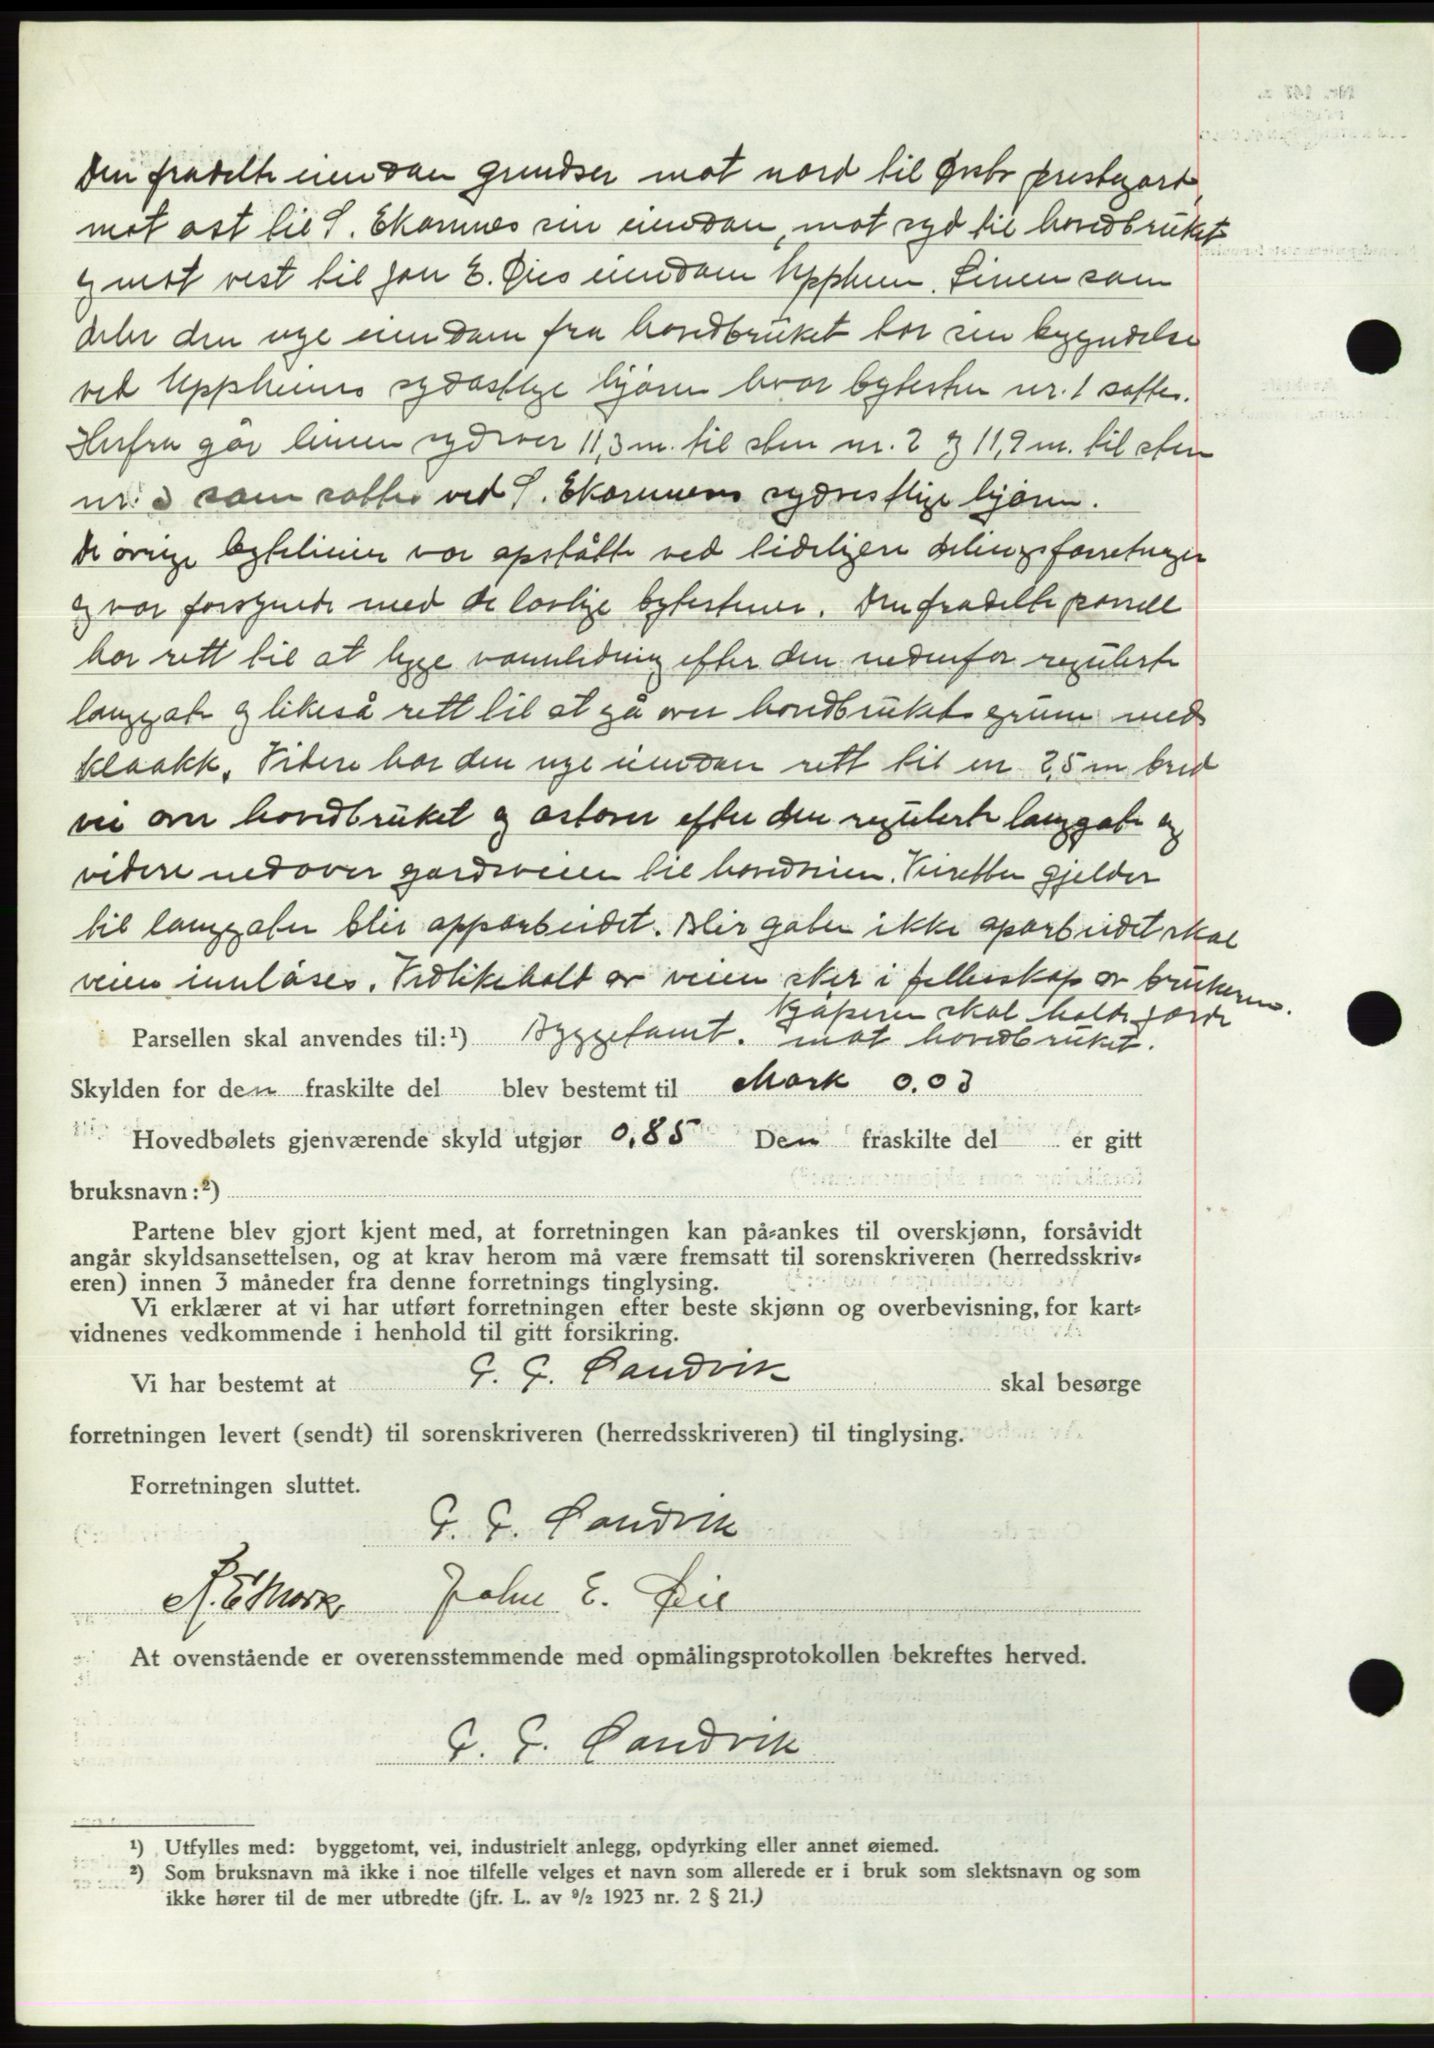 Den fradelte eiendom grundser mot nord til Ørsta prestegard,
mot øst til S. Ekornnes sin eiendom, mot syd til hovedbruket
og mot vest til Jon E. Øies eiendom Uppheim. Linen som
deler den nye eiendom fra hovedbruket har sin begyndelse
ved Uppheims sydøstlige hjørne hvor bytesten nr. 1 sattes.
Herfra går linien sydover 11,3 m. til sten nr. 2 og 11,9 m. til sten
nr. 3 som sattes ved S. Ekornnes sydvestlige hjørne.
De øvrige bytelinier var opståtte ved tidligere delingsforretninger
og var forsynede med de lovlige bytestener. Den fradelte parsell
har rett til at legge vannledning efter den nedenfor regulerte
langgate og likeså rett til at gå over hovedbrukets grunn med
kloakk. Videre har den nye eiendom rett til en 2,5 m bred
vei over hovedbruket og østover efter den regulerte langgate og
videre nedover gardsveien til hovedveien. Veiretten gjelder
til langgaten blir opparbeidet. Blir gaten ikke oparbeidet skal
veien innløses. Vedlikehold av veien skjer i fellesskap av brukerne.
Kjøperen skal holde gjerde
Parsellen skal anvendes til:¹) Byggetomt. mot hovedbruket.
Skylden for den fraskilte del blev bestemt til Mark 0.03
Hovedbølets gjenværende skyld utgjør 0,85 Den fraskilte del er gitt
bruksnavn:²)
Partene blev gjort kjent med, at forretningen kan på-ankes til overskjønn, forsåvidt
angår skyldsansettelsen, og at krav herom må være fremsatt til sorenskriveren (herredsskriv-
eren) innen 3 måneder fra denne forretnings tinglysing.
Vi erklærer at vi har utført forretningen efter beste skjønn og overbevisning, for kart-
vidnenes vedkommende i henhold til gitt forsikring.
Vi har bestemt at G. G. Sandvik skal besørge
forretningen levert (sendt) til sorenskriveren (herredsskriveren) til tinglysing.
Forretningen sluttet.
G. G. Sandvik
R. E Mork John E. Øie
At ovenstående er overensstemmende med opmålingsprotokollen bekreftes herved.
G. G. Sandvik
¹) Utfylles med: byggetomt, vei, industrielt anlegg, opdyrking eller annet øiemed.
²) Som bruksnavn må ikke i noe tilfelle velges et navn som allerede er i bruk som slektsnavn og som
ikke hører til de mer utbredte (jfr. L. av 9/2 1923 nr. 2 § 21.)